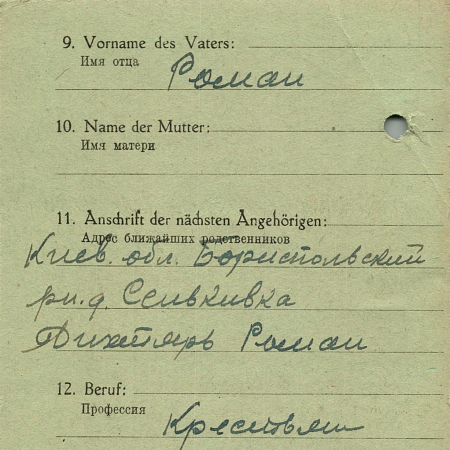 9. Vorname des Vaters:
Имя отца
Роман
10. Name der Mutter:
Имя матери
11. Anschrift der nächsten Angehörigen:
Адрес ближайших родственников
Киев. обл. Бориспольский
рн. д. Сеньковка
Дихтярь Роман
12. Beruf:
Профессия
Крестьян